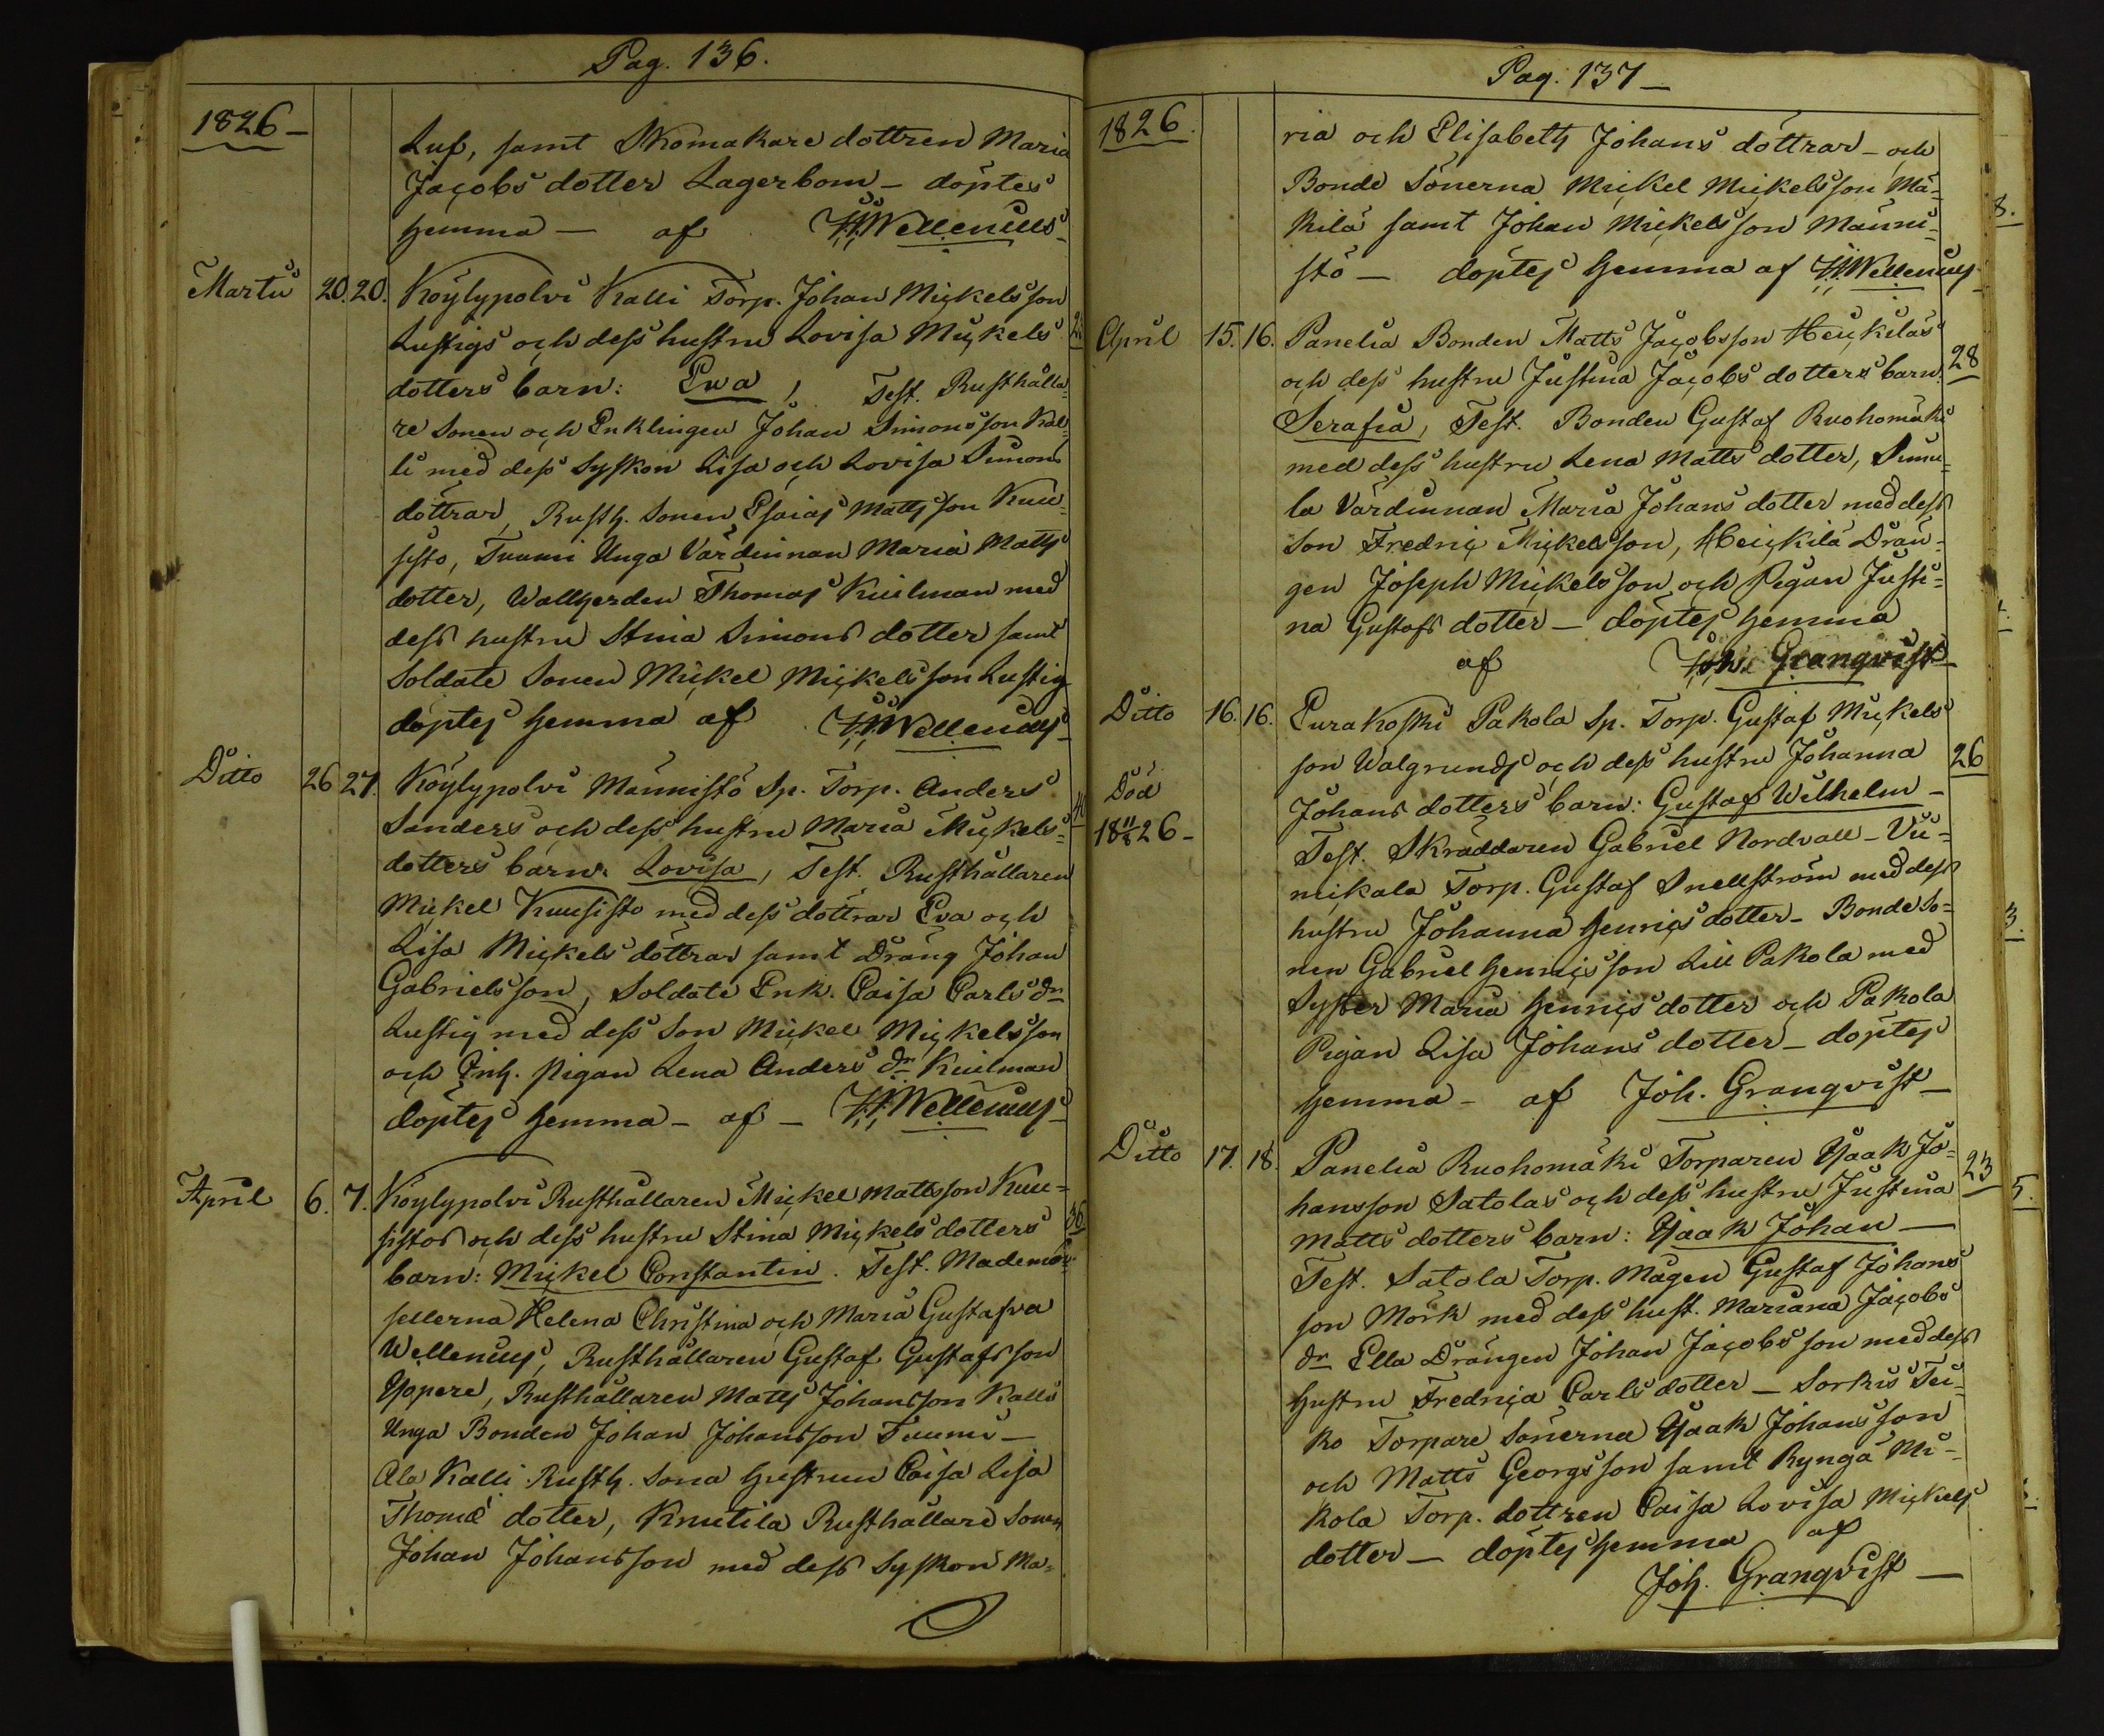 Pag. 136.
1826 –
Luf, samt Skomakare dottren Maria
Jacobs dotter Lagerbom – döptes
hemma – af Wellenius
Martii 20. 20. Köylypolvi Kalli Torp. Johan Mickelsson
Lustigs och dess hustru Lovisa Mickels
dotters barn: Ewa, Test. Rusthålla-
re Sonen och Enklingen Johan Simonsson Kal-
li med dess Syskon Lisa och Lovisa Simons
döttrar, Rusth. Sonen Esaias Mattsson Kuu-
sisto, Tuumi Unga Värdinnan Maria Matts
dotter, Thomas Kuilman med
dess hustru Stina Simons dotter samt
Soldate Sonen Mickel Mickelsson Lustig
döptes hemma af Wellenius
Ditto 26 27. Köylypolvi Männistö Sp. Torp. Anders
Sanders och dess hustru Maria Mickels-
dotters barn: Lovisa, Test. Rusthållaren
Mickel Kuusisto med dess döttrar Eva och
Lisa Mickels döttrar samt Dräng Johan
Gabrielsson, Soldate Enk. Caisa Carls dr
Lustig med dess Son Mickel Mickelsson
och Inh. pigan Lena Anders dr Kuilman
döptes hemma – af – Wellenius
April 6. 7. Köylypolvi Rusthållaren Mickel Mattsson Kuu-
sistos och dess hustru Stina Mickels dotters 36
barn: Mickel Constantin. Test. Mademoi-
sellerna Helena Christina och Maria Gustafva
Wellenius, Rusthållaren Gustaf Gustafsson
Yppere, Rusthållaren Matts Johansson Kalli
Unga Bonden Johan Johansson Tuumi –
Ala Kalli Rusth. Sona hustrun Caisa Lisa
Thomæ dotter, Knutila Rusthållare Sonen
Johan Johansson med dess Syskon Ma-
Pag. 137 –
1826.
ria och Elisabeth Johans döttrar – och
Bonde Sönerna Mickel Mickelsson Mä-
kilä samt Johan Mickelsson Männi-
stö – döptes hemma af Wellenius
April 15. 16. Panelia Bonden Matts Jacobsson Heickiläs
och dess hustru Justina Jacobs dotters barn 28
Serafia, Test. Bonden Gustaf Ruohomäki
med dess hustru Lena Matts dotter, Simu-
la Värdinnan Maria Johans dotter med dess
Son Fredric Mickelsson, Heickilä Drän-
gen Joseph Mickelsson och Pigan Justi-
na Gustafs dotter – döptes hemma
af Joh. Granqvist
Ditto 16. 16. Eurakoski Pakola Sp. Torp. Gustaf Mickels
son Walgrunds och dess hustru Johanna 26
Död Johans dotters barn: Gustaf Wilhelm –
18 26 – Test. Skräddaren Gabriel Nordvall – Vii-
nickala Torp. Gustaf Snellström med dess
hustru Johanna Henrics dotter – Bonde So-
nen Gabriel Henricsson Lill Pakola med
Syster Maria Henrics dotter och Pakola
Pigan Lisa Johans dotter – döptes
hemma – af Joh. Granqvist –
Ditto 17. 18. Panelia Ruohomäki Torparen Isaak Jo-
hansson Satolas och dess hustru Justina 23
Matts dotters barn: Isaak Johan –
Test. Satola Torp. Mågen Gustaf Johans
son Mörk med dess hust. Mariana Jacobs
dr Ella Drängen Johan Jacobsson med dess
Hustru Fredrica Carls dotter – Sorkis Tu-
ko Torpare Sönerna Isaak Johansson
och Matts Georgsson samt Ryngä Mi-
kola Torp. dottren Caisa Lovisa Mickels
dotter – döptes hemma af
Joh. Granqvist –